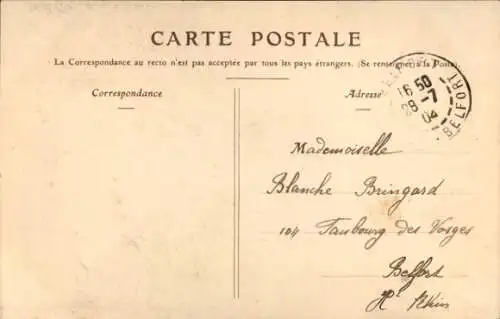 CARTE POSTALE
La Correspondance au recto n'est pas acceptée par tous les pays étrangers. (Se renseigner à la Poste)
Correspondance
Adresse
BELFORT
16 50
28 -7
04
BELFORT
Mademoiselle
Blanche Bringard
104 Faubourg des Vosges
Belfort
Ht